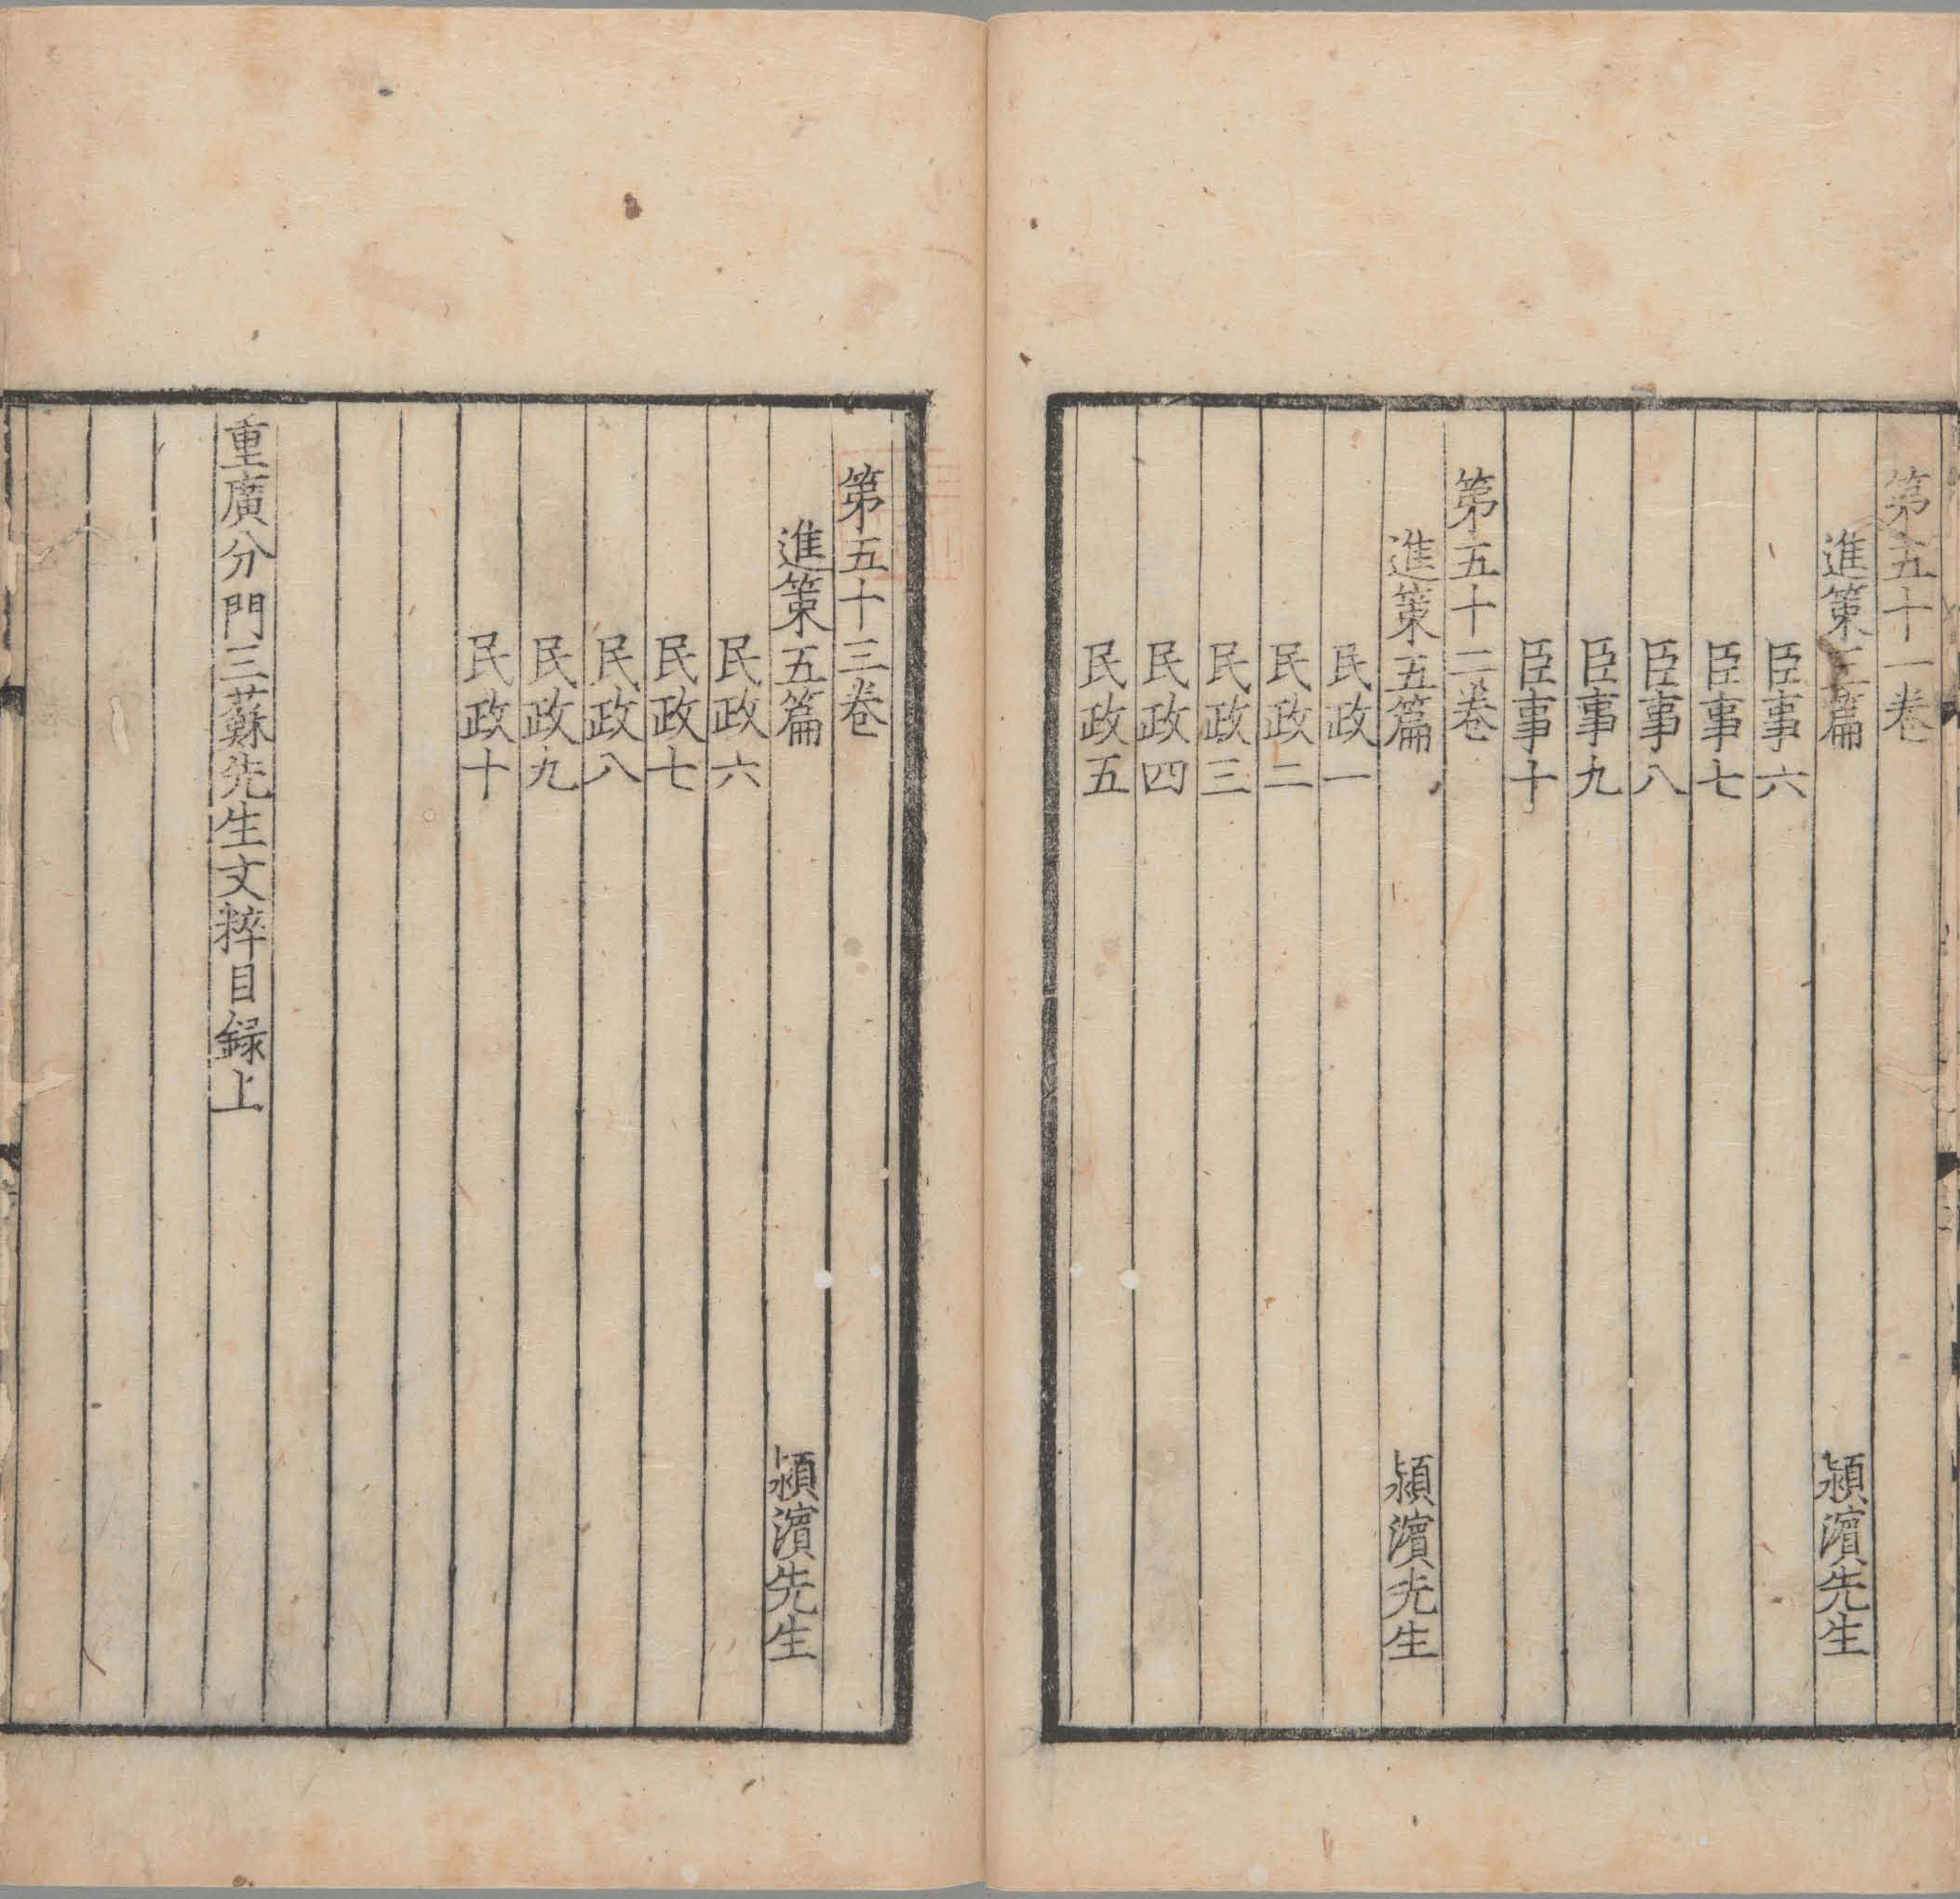 第五十一卷
進策五篇 潁濵先生
臣事六
臣事七
臣事八
臣事九
臣事十
第五十二卷
進策五篇 潁濵先生
民政一
民政二
民政三
民政四
民政五
第五十三卷
進策五篇 潁濵先生
民政六
民政七
民政八
民政九
民政十
重廣分門三蘇先生文粹目録上